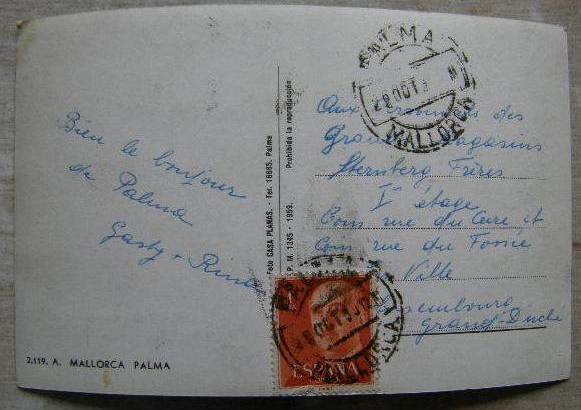 Bien le bonjour
de Palma
Gasty +
2.119. A. MALLORCA PALMA
Foto CASA PLANAS. - Tel. 16665. Palma
P. M. 1345 - 1959.
Prohibida la reproducción
PALMA
28 OCT
MALLORCA
Aux des
Grands Magasins
Sternberg Frères
1er étage
Coin rue du Curé et
Coin rue du Fossé
Ville
Luxembourg
Grand-Duché
ESPAÑA